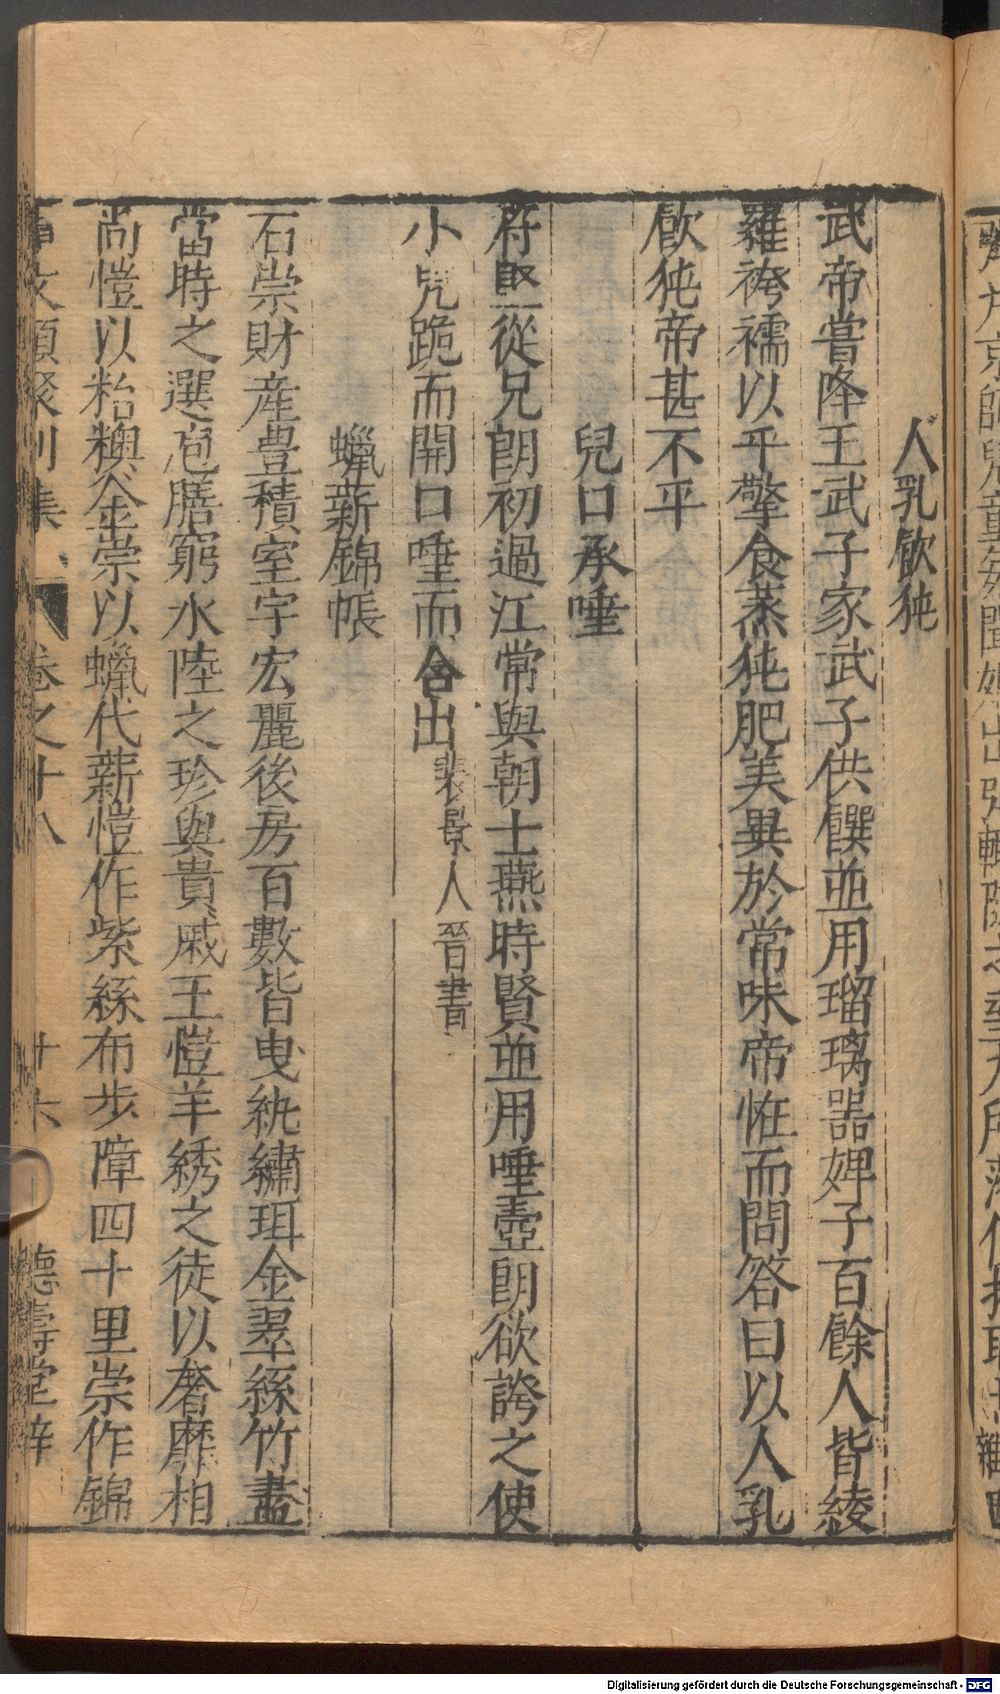 人乳飲㹠
武帝嘗降王武子家武子供饌並用瑠璃器婢子百餘人皆綾
羅袴襦以手擎食蒸㹠肥美異於常味帝恠而問答曰以人乳
飲㹠帝甚不平
兒口承唾
苻堅從兄朗初過江常與朝士燕時賢並用唾壺朗欲誇之使
小兒跪而開口唾而含出裴景人晉書
蠟薪錦帳
石崇財産豊積室宇宏麗後房百數皆曳紈繡珥金翠絲竹盡
當時之選庖膳窮水陸之珍與貴戚王愷羊綉之徒以奢靡相
尚愷以粘糗金崇以蠟代薪愷作紫絲布步障四十里崇作錦
事文類聚別集 卷之十八 廿六 德壽堂梓
Digitalisierung gefördert durch die Deutsche Forschungsgemeinschaft - DFG